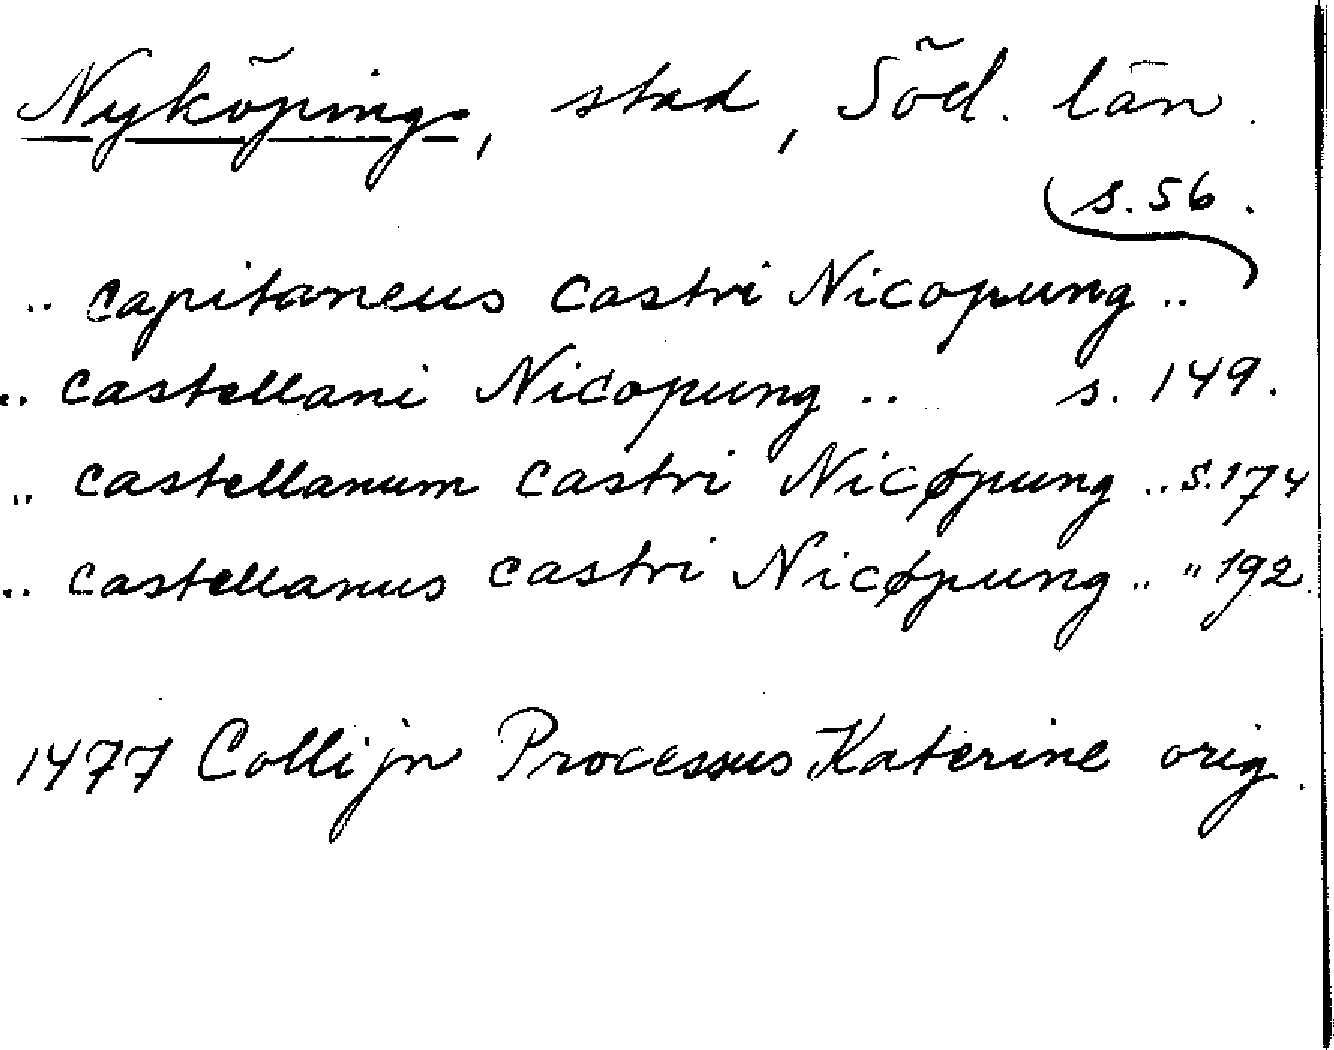 Nyköpings, stad, Söd. län.
s. 56.
.. capitaneus castri Nicopung ..
.. castellani Nicopung .. s. 149.
.. castellanum castri Nicøpung .. s. 174
.. castellanus castri Nicøpung .. " 192.
1477 Collijn Processus Katerine orig.